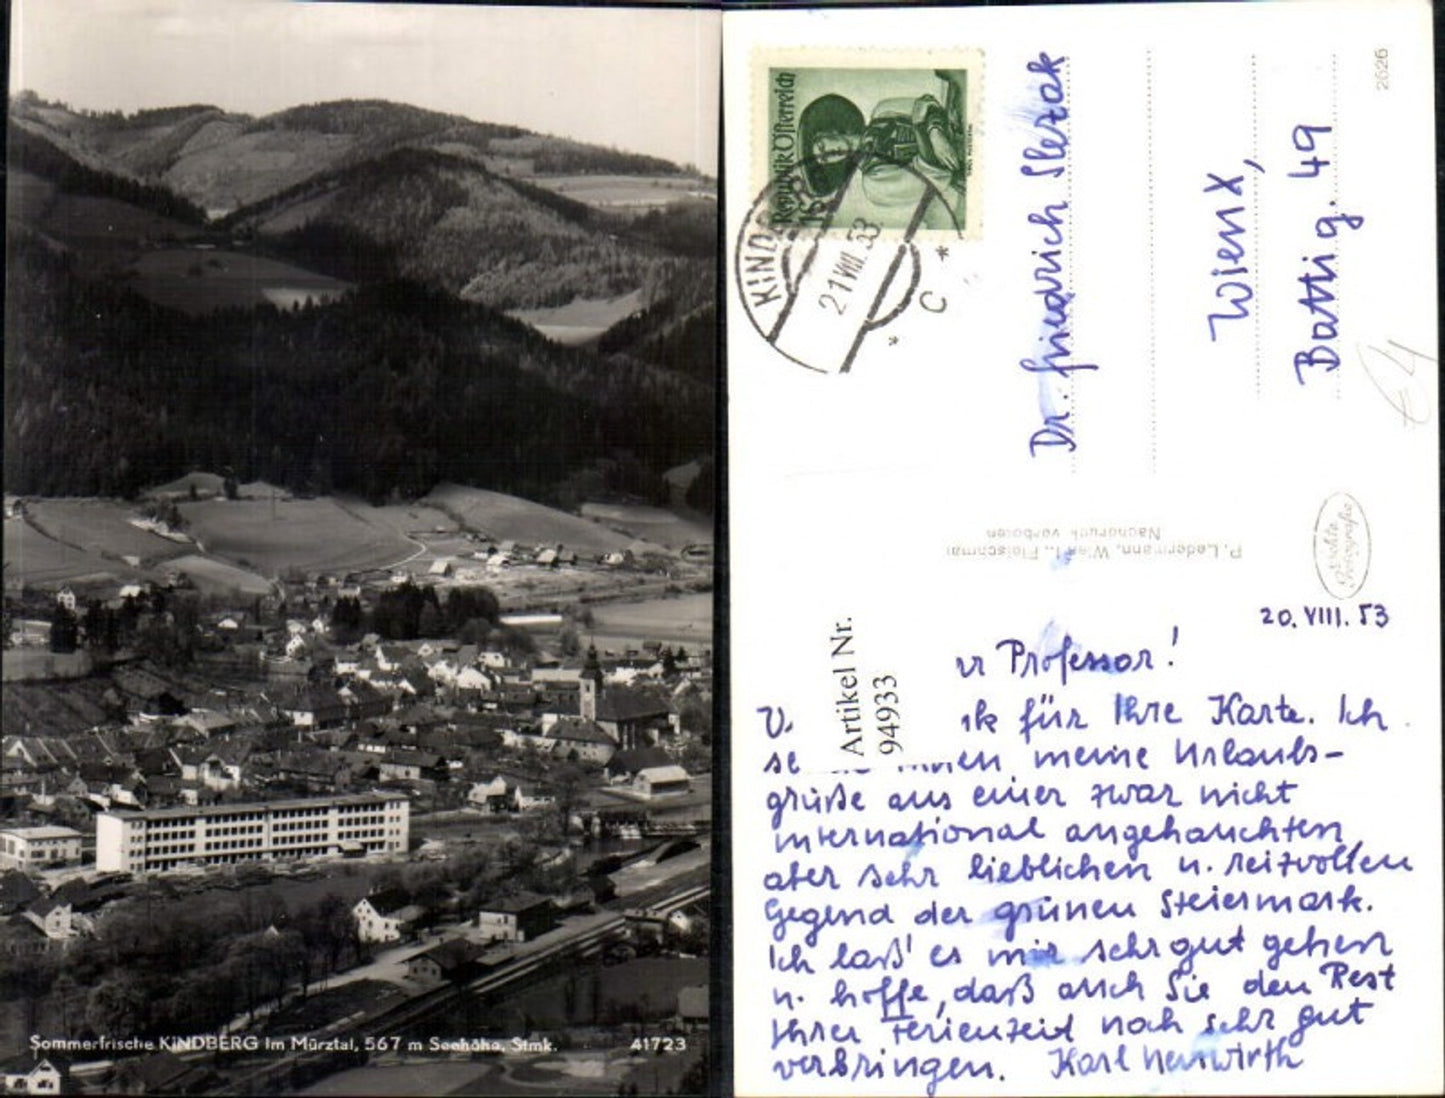 Sommerfrische KINDBERG im Mürztal, 567 m Seehöhe, Stmk.
41723
Republik Österreich
KINDBERG
21 VIII. 53
* C *
Dr. Friedrich Slezak
Wien X,
Battig. 49
2626
€4
P. Ledermann, Wien I., Fleischmar
Nachdruck verboten
Echte Fotografie
Artikel Nr.
94933
20. VIII. 53
r Professor!
V. nk für Ihre Karte. Ich
se Ihnen meine Urlaubs-
grüße aus einer zwar nicht
international angehauchten
aber sehr lieblichen u. reizvollen
Gegend der grünen Steiermark.
Ich laß' es mir sehr gut gehen
u. hoffe, daß auch Sie den Rest
Ihrer Ferienzeit noch sehr gut
verbringen. Karl Neuwirth